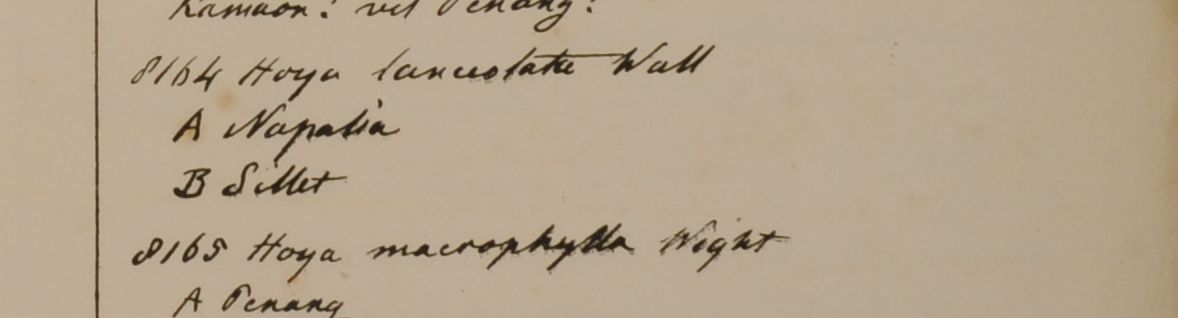 Kamaon? vel Penang?
8164 Hoya lanceolata Wall
A Napalia
B Sillet
8165 Hoya macrophylla Wight
A Penang